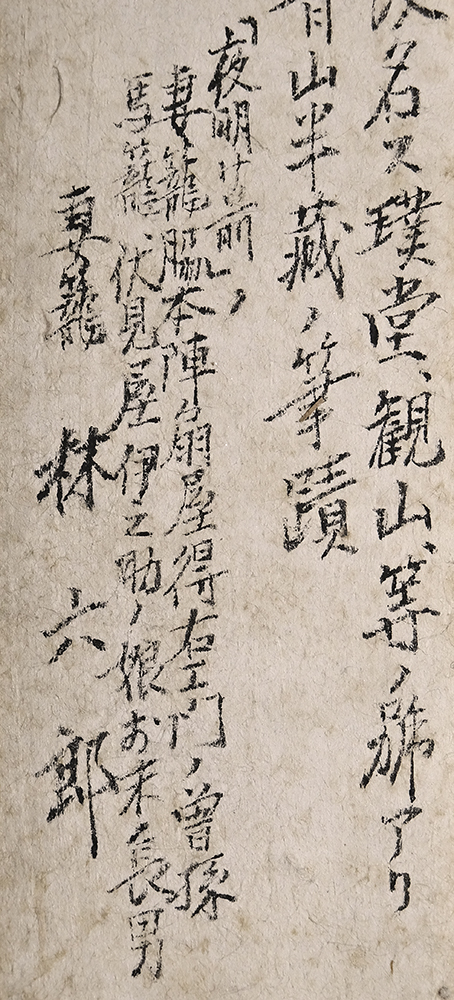 名ス璞堂、観山、等ノ号アリ
青山半蔵ノ筆蹟
「夜明け前」ノ
妻籠脇本陣扇屋得右エ門ノ曽孫
馬籠伏見屋伊之助ノ娘お末長男
妻籠 林六郎